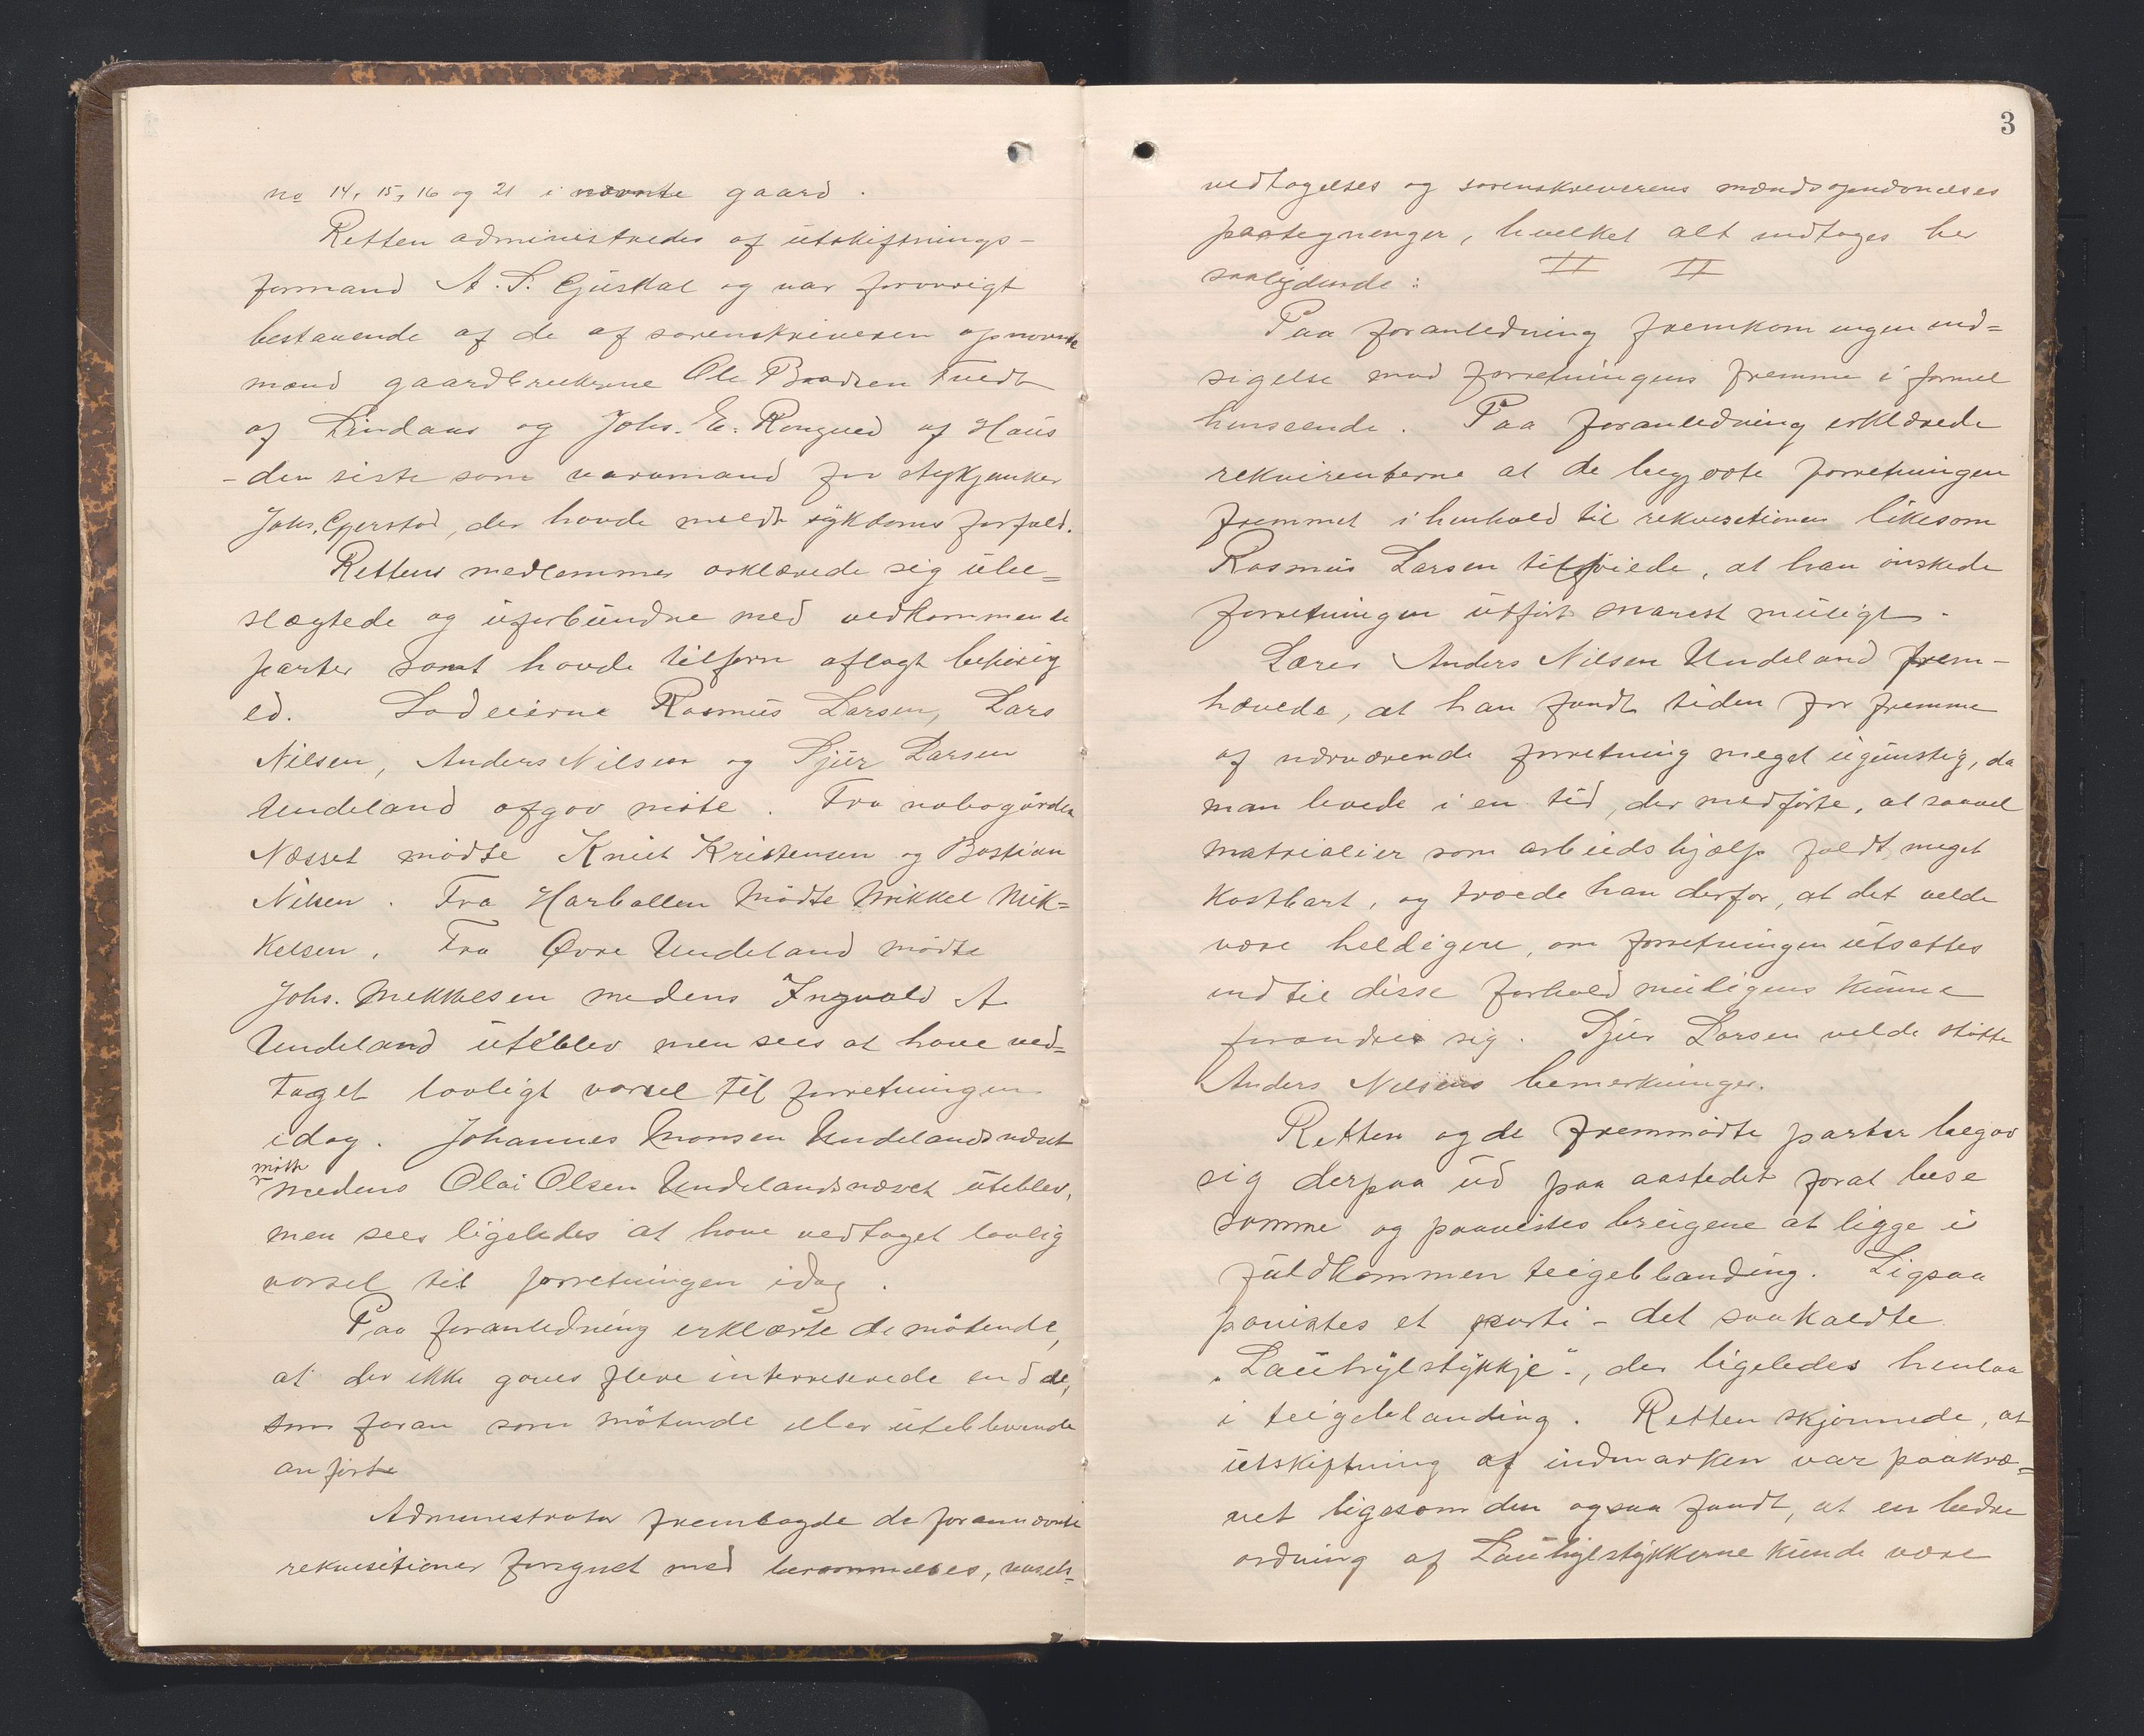 no 14, 15, 16 og 21 i nævnte gaard.
Retten administredes af utskiftnings-
formand A. S. Gjuskal og var forøvrigt
bestaaende af de af sorenskriveren opnævnte
mænd gaardbrukerne Ole Baadsen Tvedt
af Lindaas og Johs. E. Rongved af Haus
- den siste som varamand for stykjunker
Johs. Gjerstad, der havde meldt sykdoms forfald.
Rettens medlemmer erklærede sig ube=
slægtede og uforbundne med vedkommende
parter samt havde tilforn aflagt behørig
ed. Lodeierne Rasmus Larsen, Lars
Nilsen, Anders Nilsen og Sjur Larsen
Undeland afgav møte. Fra nabogården
Næsset mødte Knut Kristensen og Bastian
Nilsen. Fra Harbollen mødte Mikkel Mik=
kelsen. Fra Øvre Undeland mødte
Johs. Mikkelsen medens Ingvald A
Undeland uteblev men sees at have ved=
taget lovligt varsel til forretningen
idag. Johannes Monsen Undelandsnæset
møtte
medens Olai Olsen Undelandsnæset uteblev,
men sees ligeledes at have vedtaget lovlig
varsel til forretningen idag.
Paa foranledning erklærte de møtende,
at der ikke gaves flere interreserede end de,
som foran som møtende eller utebleven­de
anførte
Administrator fremlagde de forannævnte
rekvisitioner forsynet med berammelses, varsels-
3
vedtagelses og sorenskriverens mandsopnævnelses
paategninger, hvilket alt indtages her
saalydende: II II
Paa foranledning fremkom ingen ind=
sigelse mod forretningens fremme i formel
henseende. Paa foranledning erklærede
rekvirenterne at de begjærte forretningen
fremmet i henhold til rekvisitionen likesom
Rasmus Larsen tilføiede, at han ønskede
forretningen utført snarest muligt.
Lærer Anders Nilsen Undeland frem-
hævede, at han fandt tiden for fremme
af nærværende forretning meget ugunstig, da
man levede i en tid, der medførte, at saavel
matrialier som arbeidshjælp faldt meget
kostbart, og troede han derfor, at det vilde
være heldigere, om forretningen utsattes
indtil disse forhold muligens kunne
forandres sig. Sjur Larsen vilde støtte
Anders Nilsens bemerkninger.
Retten og de fremmødte parter begav
sig derpaa ud paa aastedet forat bese
samme og paavistes breigene at ligge i
fuldkommen teigeblanding. Ligsaa
paavistes et parti - det saakaldte
"Lauhylstykkje", der ligeledes henlaa
i teigeblanding. Retten skjønnede, at
utskiftning af indmarken var paakræ=
vet ligesom den ogsaa fandt, at en bedre
ordning af Lauhylstykkerne kunde være